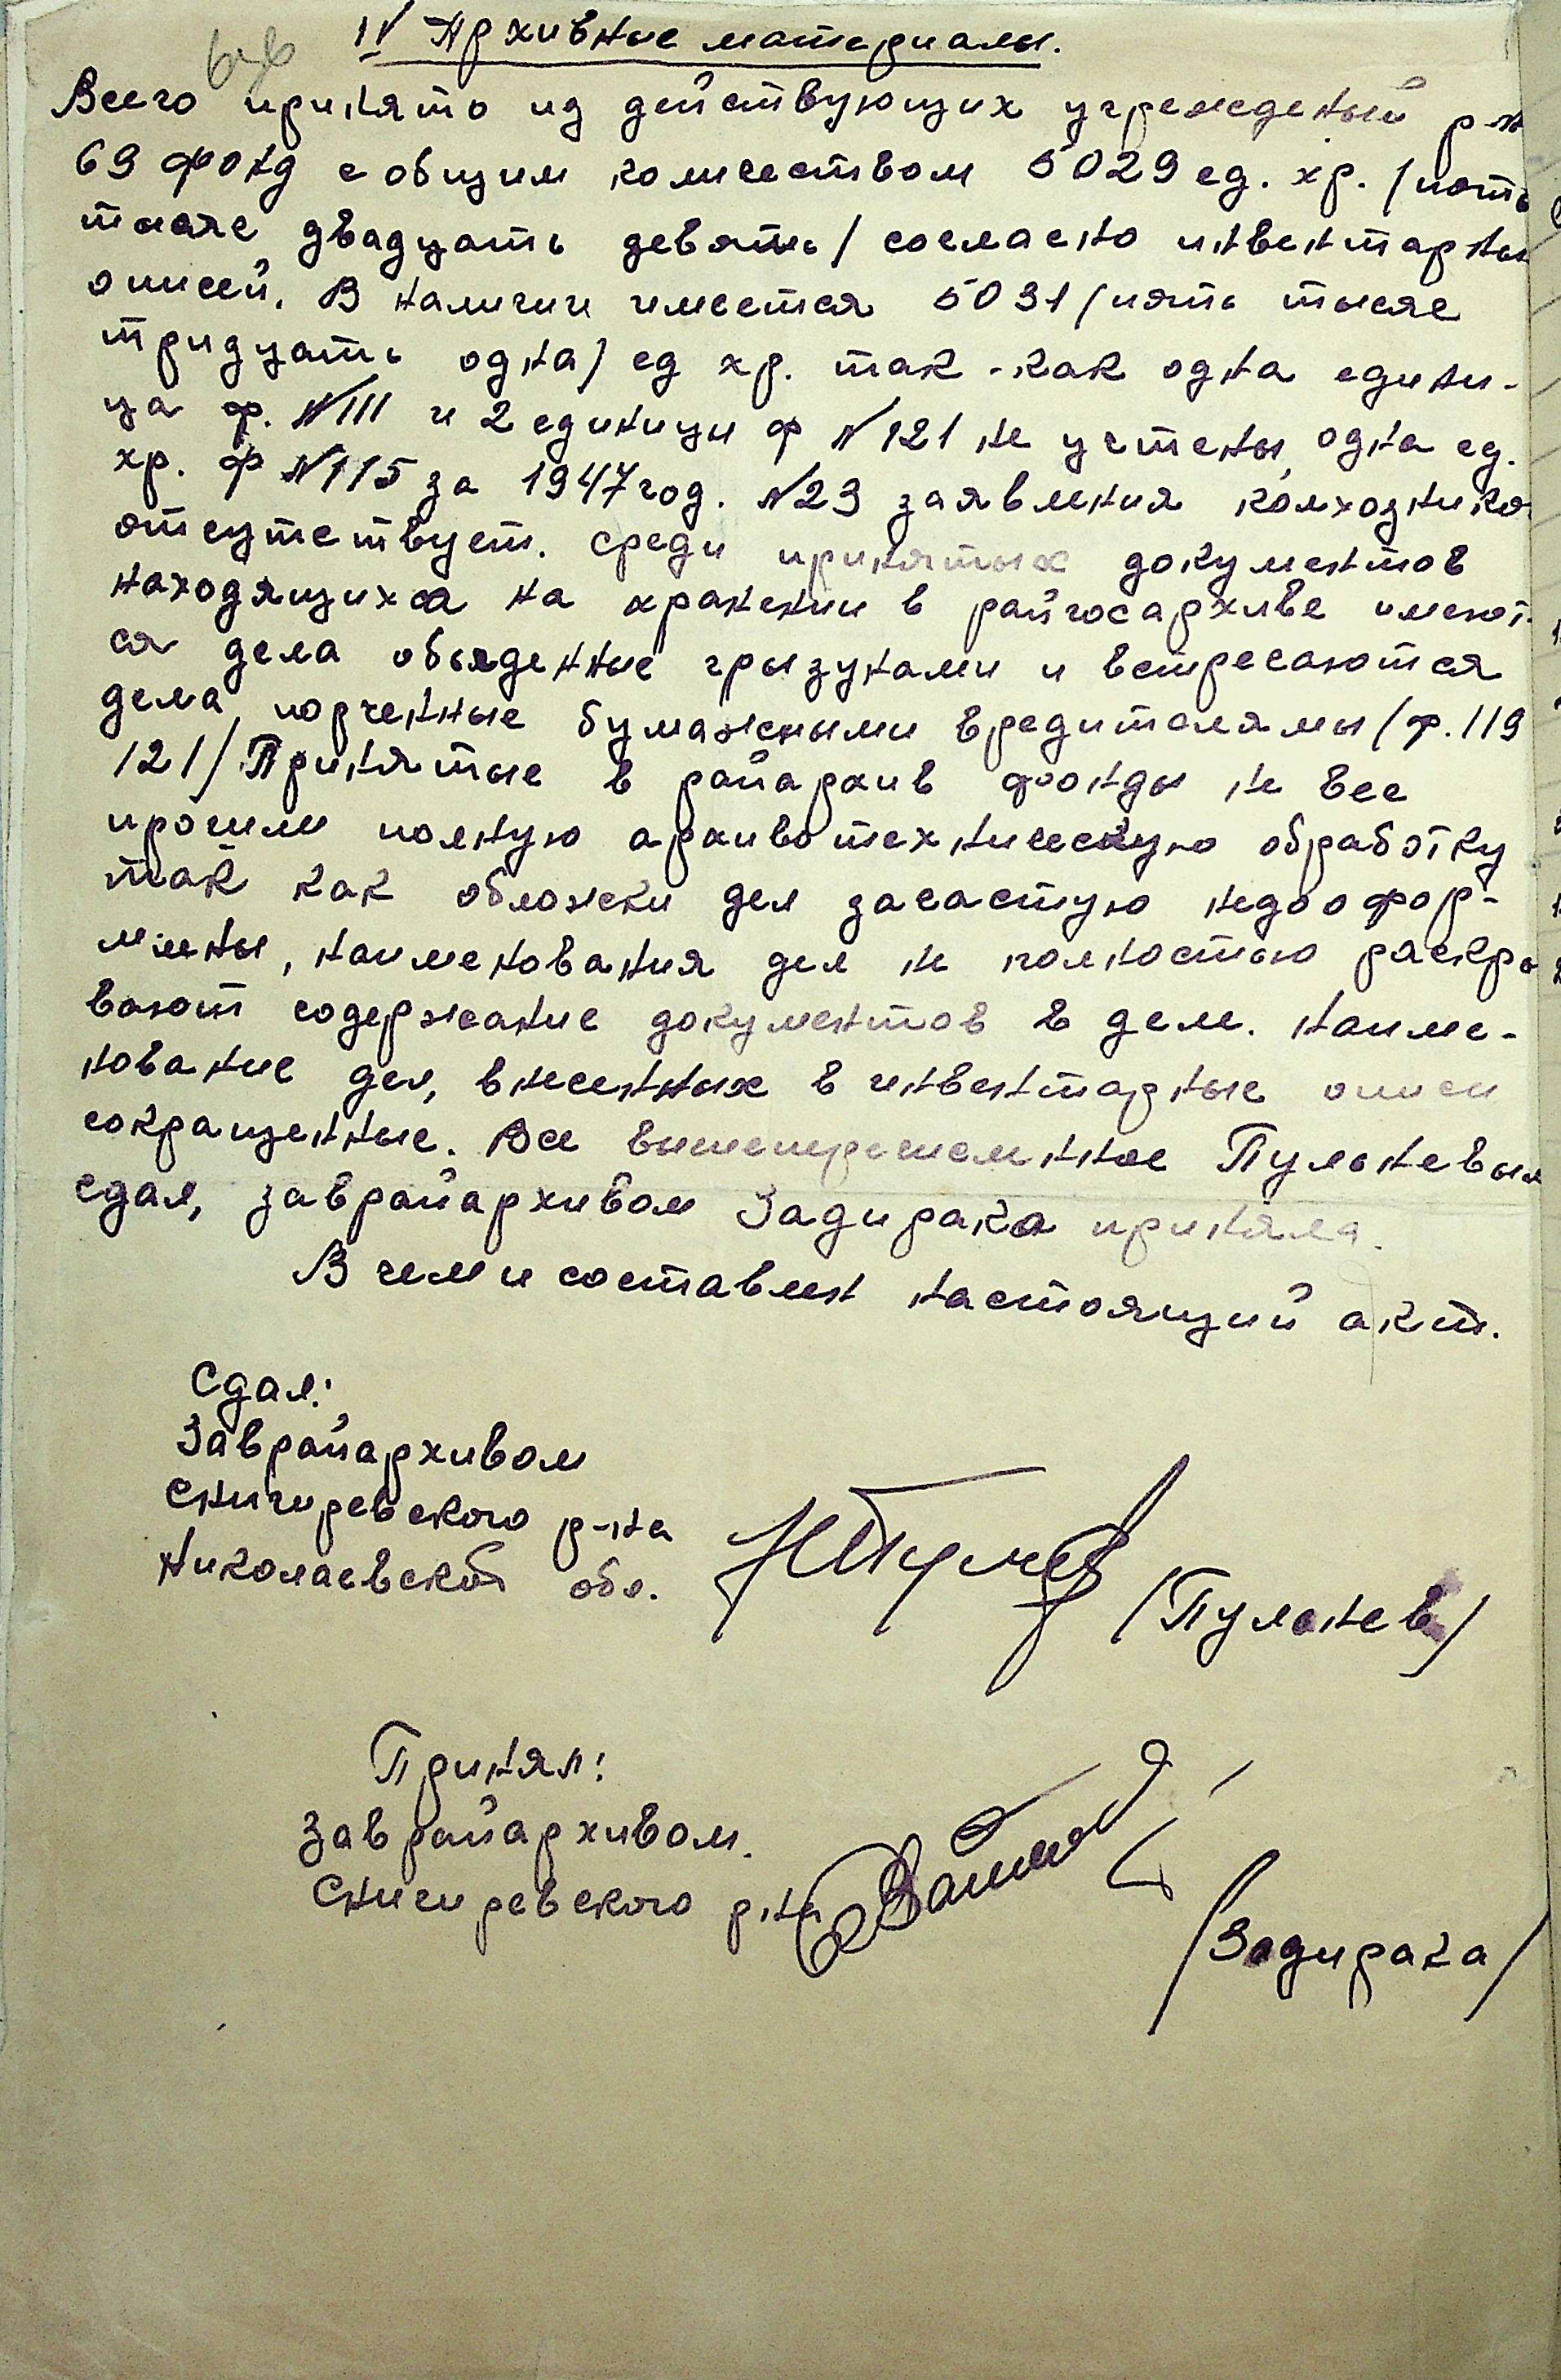 IV Архивные материалы.
Всего принято из действующих учреждений р-н
69 фонд с общим количеством 5029 ед. хр. /пять
тысяч двадцать девять/ согласно инвентарны
описей. В наличии имеется 5031 /пять тысяч
тридцать одна/ ед хр. так-как одна едини-
ца ф. №111 и 2 единицы ф №121 не учтены, одна ед.
хр. ф №115 за 1947 год. №23 заявления колхозников
отсутствует. Среди принятых документов
находящихся на хранении в райгосархиве имеют-
ся дела объяденные грызунами и встречаются
дела порченные бумажными вредителями /ф.119
121/ Принятые в райархив фонды не все
прошли полную архивотехническую обработку
так как обложки дел зачастую недоофор-
млены, наименования дел не полностью раскры
вают содержание документов в деле. Наиме-
нование дел, внесенных в инвентарные описи
сокращенные. Все вышеперечисленное Пульневым
сдал, заврайархивом Задирака приняла.
В чем и составлен настоящий акт.
Сдал:
Заврайархивом
Снигиревского р-на
Николаевской обл.
/Пульнев/
Принял:
Заврайархивом.
Снигиревского р-на
/Задирака/